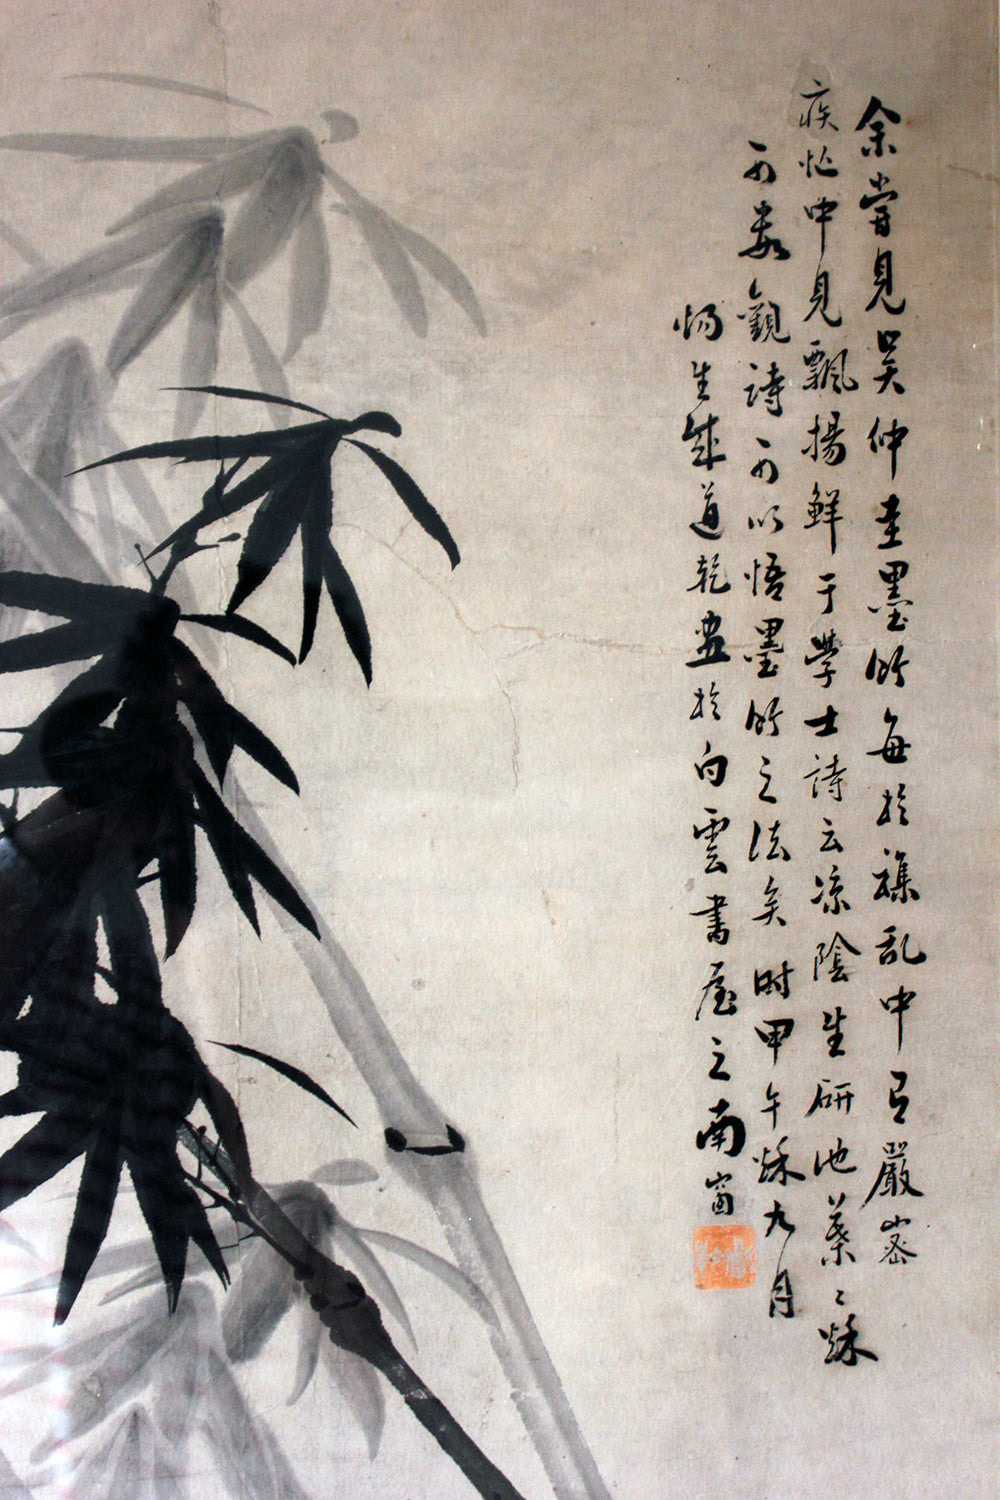 余嘗見吴仲圭墨竹每於襍乱中有嚴密
疾忙中見飄揚鮮于學士詩云凉陰生研池葉〻秋
可數觀詩可以悟墨竹之法矣时甲午秌九月
惕生道乾畫於白雲書屋之南窗